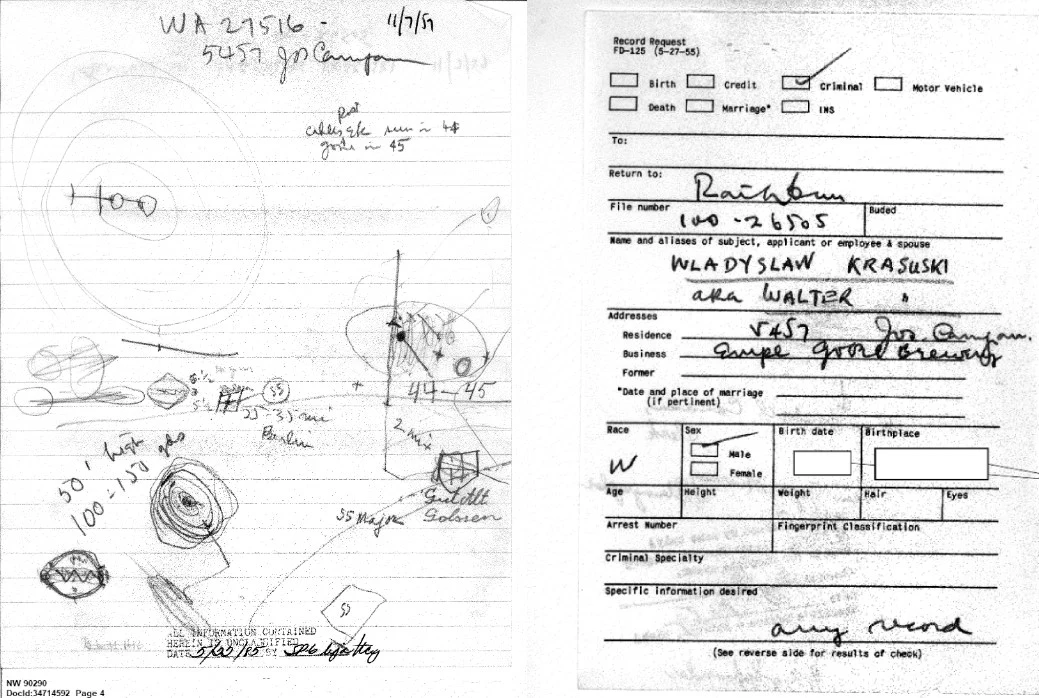 WA 27516 -
11/7/57
5457 Jos Campau
in 44
in 45
400
44-45
5 1/2
SS
35 mi
Berlin
2 mix
50' high
100-150 yds
Gut Alt
Golssen
SS Major
SS
ALL INFORMATION CONTAINED
HEREIN IS UNCLASSIFIED
DATE 5/22/85 BY
NW 90290
DocId:34714592 Page 4
Record Request
FD-125 (5-27-55)
Birth Credit Criminal Motor Vehicle
Death Marriage* INS
To:
Return to: Rathbun
File number 100-26505 Buded
Name and aliases of subject, applicant or employee & spouse
WLADYSLAW KRASUSKI
aka WALTER
Addresses
Residence 5457 Jos. Campau.
Business Goose Brewery
Former
*Date and place of marriage
(if pertinent)
Race Sex Birth date Birthplace
W Male
Female
Age Height Weight Hair Eyes
Arrest Number Fingerprint Classification
Criminal Specialty
Specific information desired
any record
(See reverse side for results of check)